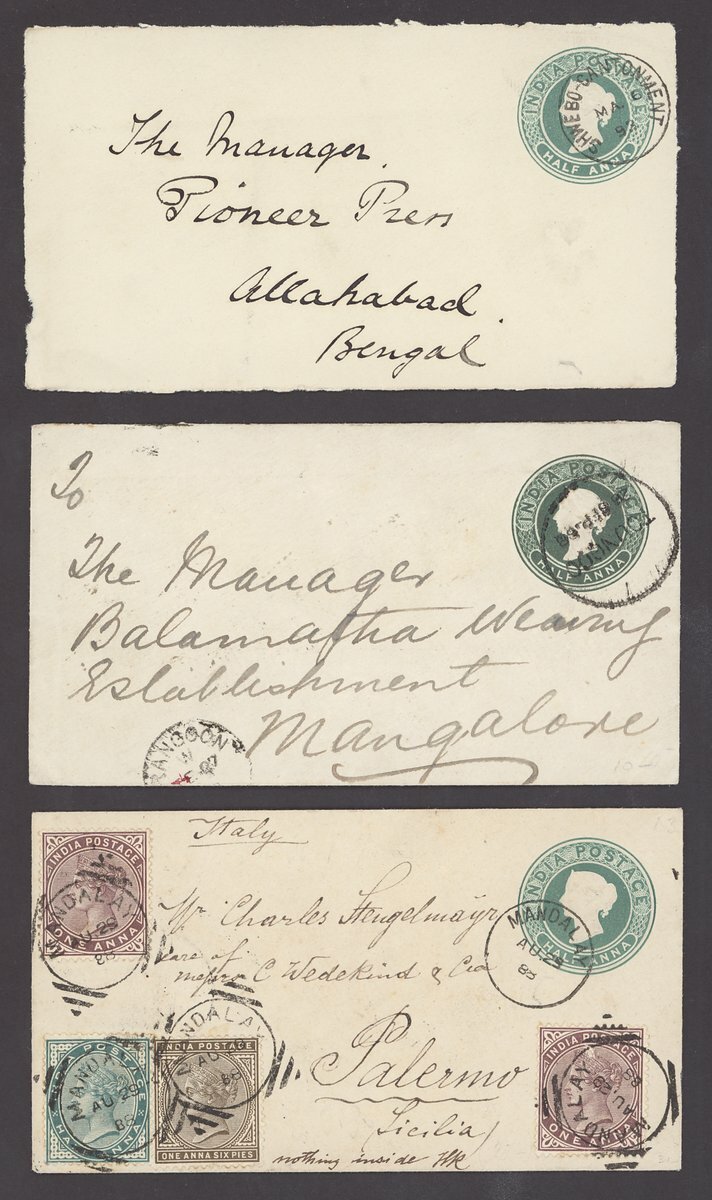 INDIA POSTAGE
HALF ANNA
SHWEBO-CANTONMENT
MA 6
The Manager.
Pioneer Press
Allahabad.
Bengal
INDIA POSTAGE
HALF ANNA
SEP. 89
To
The Manager
Balamatha Weaving
Establishment
Mangalore
RANGOON
Italy
INDIA POSTAGE
ONE ANNA
MANDALAY
AU 29
88
INDIA POSTAGE
HALF ANNA
MANDALAY
AU 29
88
Mr Charles Stengelmayr
care of
messrs C Wedekind & Cia
Palermo
Sicilia
nothing inside HK
POSTAGE
HALF ANNA
MANDALAY
AU 29
88
INDIA POSTAGE
ONE ANNA SIX PIES
MANDALAY
AU
88
INDIA POSTAGE
ONE ANNA
MANDALAY
AU
88